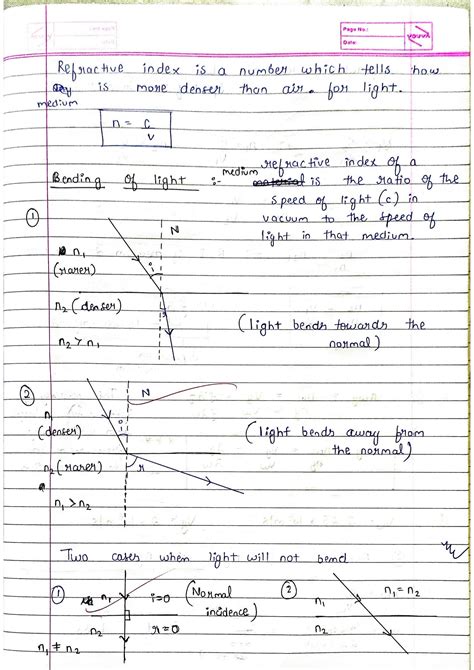 Page No.:
Date:
youva
Refractive index is a number which tells how
is more denser than air. for light.
medium
n = c/v
Bending of light :-
refractive index of a
medium material is the ratio of the
speed of light (c) in
vacuum to the speed of
light in that medium.
①
N
n₁
(rarer)
i
n₂ (denser)
r
n₂ > n₁
(light bends towards the
normal)
②
N
n₁
(denser)
i
n₂ (rarer)
r
n₁ > n₂
(light bends away from
the normal)
Two cases when light will not bend
①
n₁
i=0
(Normal
incidence)
n₂
r=0
n₁ ≠ n₂
②
n₁
n₁ = n₂
n₂